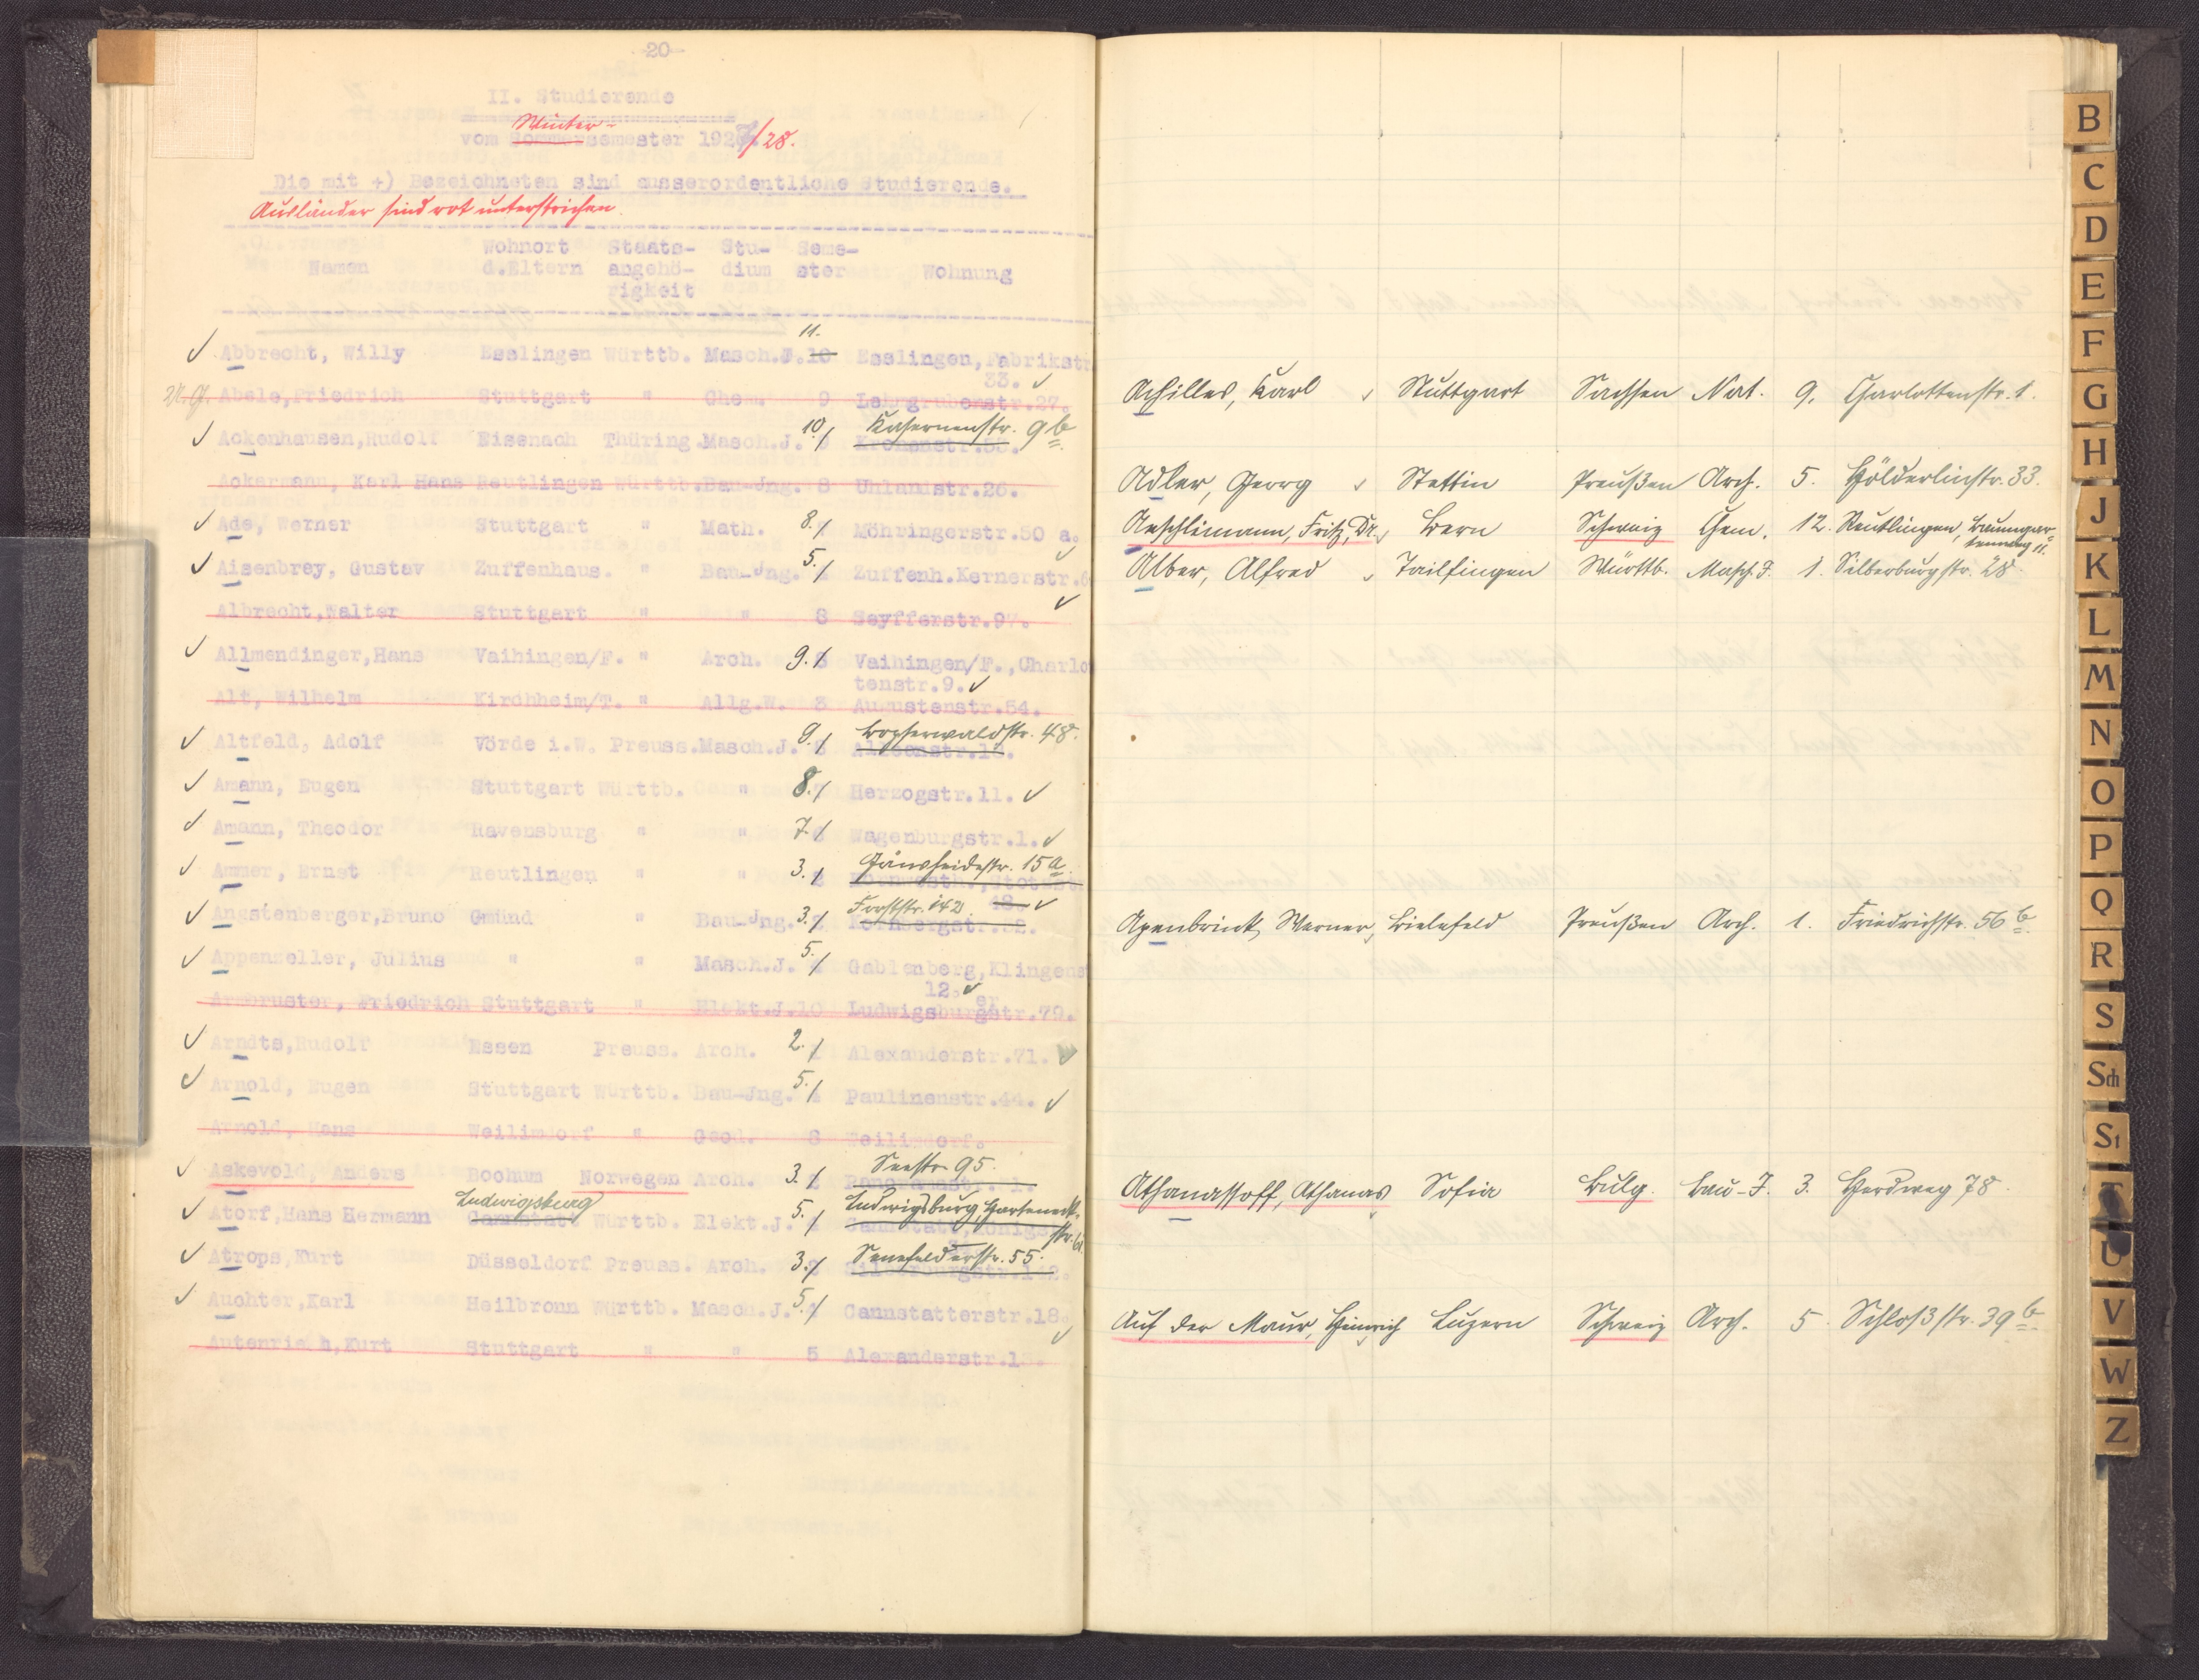 -20-
II. Studierende
Winter-
vom Sommersemester 1927/28.
Die mit +) Bezeichneten sind ausserordentliche Studierende.
Ausländer sind rot unterstrichen.
Wohnort Staats- Stu- Seme-
Namen d.Eltern angehö- dium ster Wohnung
rigkeit
11.
Abbrecht, Willy Esslingen Württb. Masch.J. 10 Esslingen, Fabrikstr
33.
Abele, Friedrich Stuttgart " Chem. 9 Lehrgruberstr.27.
10. Kasernenstr. 9b
Ackenhausen, Rudolf Eisenach Thüring. Masch.J. Kronenstr.53.
Ackermann, Karl Hans Reutlingen Württb. Bau-Jng. 8 Uhlandstr.26.
Ade, Werner Stuttgart " Math. 8. Möhringerstr.50 a.
Aisenbrey, Gustav Zuffenhaus. " Bau-Jng. 5. Zuffenh.Kernerstr.6
Albrecht, Walter Stuttgart " " 8 Seyfferstr.97.
Allmendinger, Hans Vaihingen/F. " Arch. 9. 8 Vaihingen/F., Charlo
tenstr.9.
Alt, Wilhelm Kirchheim/T. " Allg.W. 3 Augustenstr.54.
9. Bopserwaldstr. 48.
Altfeld, Adolf Vörde i.W. Preuss. Masch.J.
Amann, Eugen Stuttgart Württb. " 8. Herzogstr.11.
Amann, Theodor Ravensburg " " 7. Wagenburgstr.1.
3. Gänsheidestr. 15a.
Ammer, Ernst Reutlingen " "
Forststr. 142. 48.
Angstenberger, Bruno Gmünd " Bau-Jng. 3. Kornbergstr.32.
Appenzeller, Julius " " Masch.J. 5. Gablenberg, Klingenst
12.
Armbruster, Friedrich Stuttgart " Elekt.J. 10 Ludwigsburgerstr.79.
Arndts, Rudolf Essen Preuss. Arch. 2. Alexanderstr.71.
Arnold, Eugen Stuttgart Württb. Bau-Jng. 5. Paulinenstr.44.
Arnold, Hans Weilimdorf " Geod. 8 Weilimdorf.
Seestr. 95.
Askevold, Anders Bochum Norwegen Arch. 3. Panoramastr. 1.
Ludwigsburg Ludwigsburg, Harteneck-
Atorf, Hans Hermann Cannstatt Württb. Elekt.J. 5. Cannstatt, Königs
str. 61
Senefelderstr. 55.
Atrops, Kurt Düsseldorf Preuss. Arch. 3. Silberburgstr.142.
Auchter, Karl Heilbronn Württb. Masch.J. 5. Cannstatterstr.18.
Autenrieth, Kurt Stuttgart " " 5 Alexanderstr.1
Achilles, Karl Stuttgart Sachsen Nat. 9. Charlottenstr. 1.
Adler, Georg Stettin Preußen Arch. 5. Hölderlinstr. 33.
Aeschlimann, Fritz, Dr. Bern Schweiz Chem. 12. Reutlingen, Baumgar-
tenweg 11.
Alber, Alfred Tailfingen Württb. Masch.J. 1. Silberburgstr. 28.
Apenbrink, Werner, Bielefeld Preußen Arch. 1. Friedrichstr. 56b.
Athanassoff, Athanas Sofia Bulg. Bau-J. 3. Herdweg 78.
Auf der Maur, Heinrich Luzern Schweiz Arch. 5. Schloßstr. 39b.
B
C
D
E
F
G
H
J
K
L
M
N
O
P
Q
R
S
Sch
St
T
U
V
W
Z